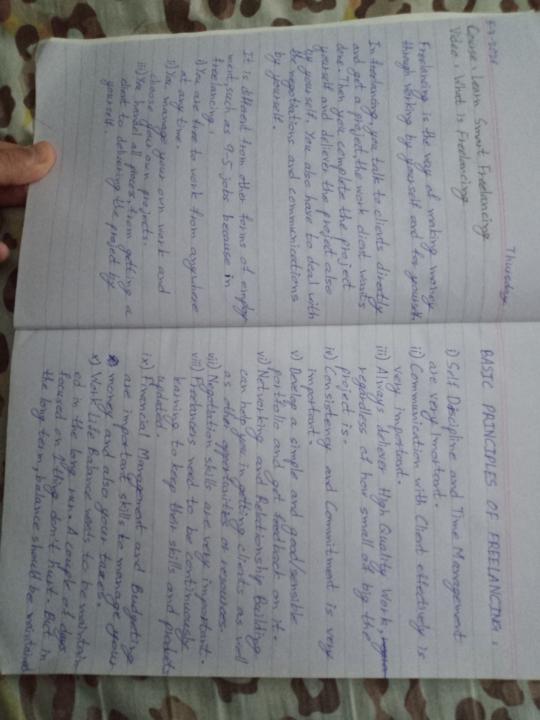 Thursday
Course: Learn Smart Freelancing
Video: What is Freelancing
Freelancing is the way of making money
through working by yourself and for yourself.
In freelancing, you talk to clients directly
and get a project, the work client wants
done. Then you complete the project
yourself and deliever the project also
by yourself. You also have to deal with
the negotiations and communications
by yourself.
It is different from other forms of employ-
ment, such as 9-5 jobs because in
freelancing:
i) You are free to work from anywhere
at any time.
ii) You manage your own work and
choose your own projects.
iii) You handel all process, from getting a
client to delivering the project by
yourself.
BASIC PRINCIPLES OF FREELANCING:
i) Self Discipline and Time Management
are very important.
ii) Communication with Client effectively is
very important.
iii) Always deliever High Quality Work,
regardless of how small or big the
project is.
iv) Consistency and Commitment is very
important.
v) Develop a simple and good/sensible
portfolio and get feedback on it.
vi) Networking and Relationship Building
can help you in getting clients as well
as other opportunities or resources.
vii) Negotiation skills are very important.
viii) Freelancers need to be continuously
learning to keep their skills and products
updated.
ix) Financial Management and Budgeting
are important skills to manage your
money and also your taxes.
x) Work Life Balance needs to be maintain-
ed in the long run. A couple of days
focused on 1 thing don't hurt. But in
the long term, balance should be maintained